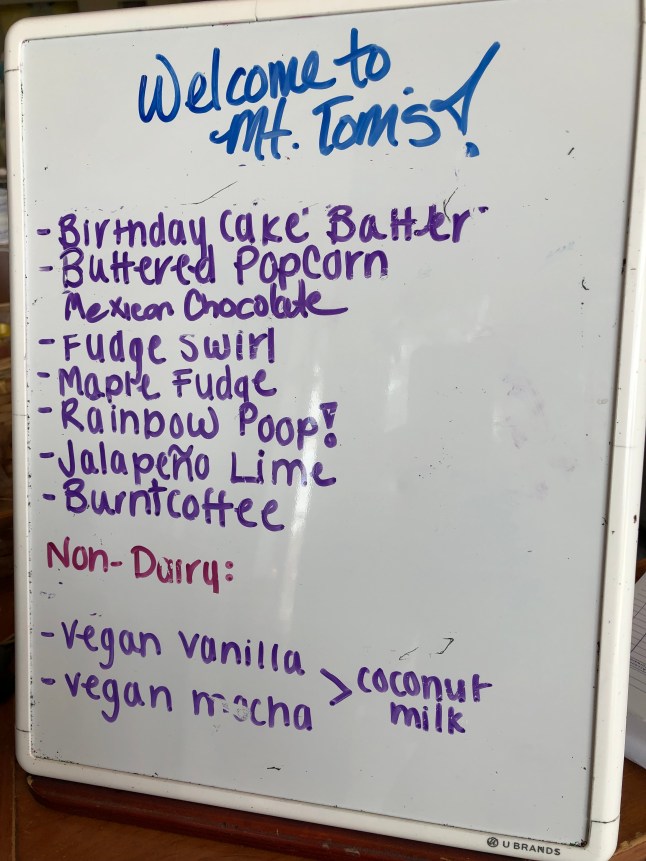 Welcome to
Mt. Tom's!
- Birthday Cake Batter
- Buttered Popcorn
Mexican Chocolate
- Fudge swirl
- Maple Fudge
- Rainbow Poop!
- Jalapeño Lime
- Burnt coffee
Non-Dairy:
- vegan vanilla
- vegan mocha > coconut
milk
U BRANDS